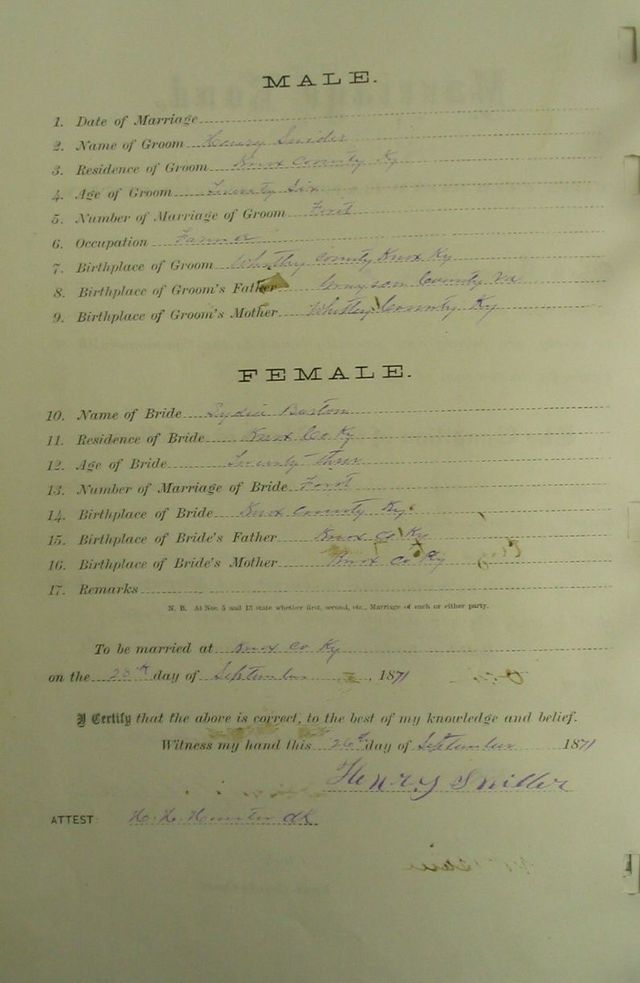 MALE.
1. Date of Marriage
2. Name of Groom Henry Snider
3. Residence of Groom Knox County Ky
4. Age of Groom Twenty Six
5. Number of Marriage of Groom First
6. Occupation Farmer
7. Birthplace of Groom Whitley County Knox Ky
8. Birthplace of Groom's Father Grayson County Va
9. Birthplace of Groom's Mother Whitley County Ky
FEMALE.
10. Name of Bride Lydia Barton
11. Residence of Bride Knox Co Ky
12. Age of Bride Twenty three
13. Number of Marriage of Bride First
14. Birthplace of Bride Knox County Ky
15. Birthplace of Bride's Father Knox Co Ky
16. Birthplace of Bride's Mother Knox Co Ky
17. Remarks
N. B. At Nos. 5 and 13 state whether first, second, etc., Marriage of each or either party.
To be married at Knox Co Ky
on the 28th day of September, 1871
I Certify that the above is correct, to the best of my knowledge and belief.
Witness my hand this 26th day of September 1871
Henry Snider
ATTEST H. H. Hunter clk